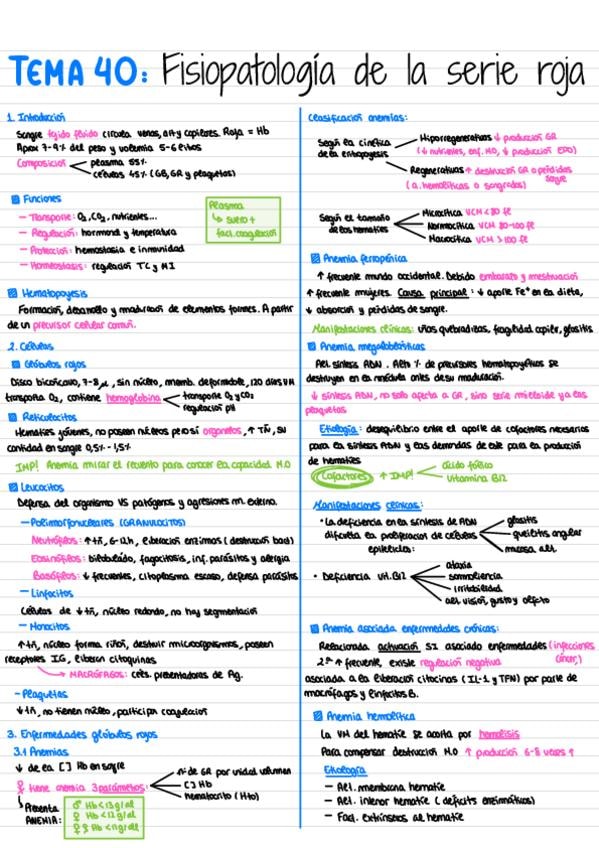 TEMA 40: Fisiopatología de la serie roja
1. Introducción
Sangre tejido fluido circula venas, art y capilares. Roja = Hb
Aprox 7-9% del peso y volemia 5-6 litros
Composición
plasma 55%
células 45% (GB, GR y plaquetas)
Funciones
- Transporte: O2, CO2, nutrientes...
- Regulación: hormonal y temperatura
- Protección: hemostasia e inmunidad
- Homeostasis: regulación TC y MI
Plasma
↳ suero +
fact. coagulación
Hematopoyesis
Formación, desarrollo y maduración de elementos formes. A partir
de un precursor celular común.
2. Células
Glóbulos rojos
Disco bicóncavo, 7-8 μ, sin núcleo, memb. deformable, 120 días VM
transporta O2, contiene hemoglobina
transporte O2 y CO2
regulación pH
Reticulocitos
Hematíes jóvenes, no poseen núcleos pero sí organelos, ↑ TÑ, su
cantidad en sangre 0,5% - 1,5%
IMP! Anemia mirar el recuento para conocer la capacidad M.O
Leucocitos
Defensa del organismo VS patógenos y agresiones m. externo.
- Polimorfonucleares (GRANULOCITOS)
Neutrófilos: ↑ tñ, 6-12h, liberación enzimas (destrucción bact)
Eosinófilos: bilobulado, fagocitosis, inf. parásitos y alergia
Basófilos: ↓ frecuentes, citoplasma escaso, defensa parásitos
- Linfocitos
Células de ↓ tñ, núcleo redondo, no hay segmentación
- Monocitos
↑ tñ, núcleo forma riñón, destruir microorganismos, poseen
receptores IG, liberan citoquinas
→ MACRÓFAGOS: cels. presentadoras de Ag.
- Plaquetas
↓ tñ, no tienen núcleo, participa coagulación
3. Enfermedades glóbulos rojos
3.1 Anemias
↓ de la [ ] Hb en sangre
♀ tiene anemia 3 parámetros:
nº de GR por unidad volumen
[ ] Hb
hematocrito (Hto)
↳ Presenta
ANEMIA:
♂ Hb <13g/dl
♀ Hb <12g/dl
♀♀ Hb <11g/dl
Clasificación anemias:
Según la cinética
de la eritropoyesis
Hiporregenerativas ↓ producción GR
(↓ nutrientes, enf. MO, ↓ producción EPO)
Regenerativas ↑ destrucción GR o pérdidas
sangre
(a. hemolíticas o sangrados)
Según el tamaño
de los hematíes
Microcítica VCM < 80 fl
Normocítica VCM 80-100 fl
Macrocítica VCM > 100 fl
Anemia ferropénica
↑ frecuente mundo occidental. Debido embarazo y menstruación
↑ frecuente mujeres. Causa principal: ↓ aporte Fe+ en la dieta,
↓ absorción y pérdidas de sangre.
Manifestaciones clínicas: uñas quebradizas, fragilidad capilar, glositis
Anemia megaloblásticas
Alt. síntesis ADN. Alto % de precursores hematopoyéticos se
destruyen en la médula antes de su maduración.
↓ síntesis ADN, no solo afecta a GR, sino serie mieloide y a las
plaquetas
Etiología: desequilibrio entre el aporte de cofactores necesarios
para la síntesis ADN y las demandas de este para la producción
de hematíes
Cofactores ↑ IMP!
ácido fólico
Vitamina B12
Manifestaciones clínicas:
• La deficiencia en la síntesis de ADN
dificulta la proliferación de células
epiteliales:
glositis
queilitis angular
mucosa alt.
• Deficiencia vit. B12
ataxia
somnolencia
irritabilidad
alt. visión, gusto y olfato
Anemia asociada enfermedades crónicas:
Relacionada activación SI asociado enfermedades (infecciones
cáncer,)
2ª ↑ frecuente, existe regulación negativa
asociada a la liberación citocinas (IL-1 y TFN) por parte de
macrófagos y linfocitos B.
Anemia hemolítica
La VM del hematíe se acorta por hemólisis
Para compensar destrucción M.O ↑ producción 6-8 veces ↑
Etiología
- Alt. membrana hematíe
- Alt. interior hematíe (déficits enzimáticos)
- Fact. extrínsecos al hematíe